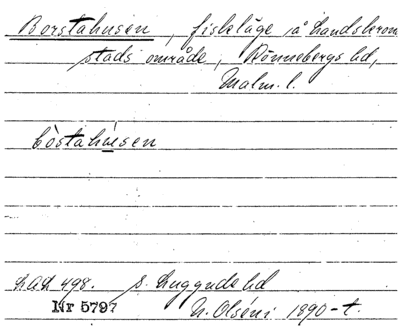 Borstahusen, fiskeläge å Landskrona
stads område, Rönnebergs hd,
Malm. l.
bòstahúsen
LAL 498. S. Luggude hd
Nr 5797 N. Olséni 1890-t.